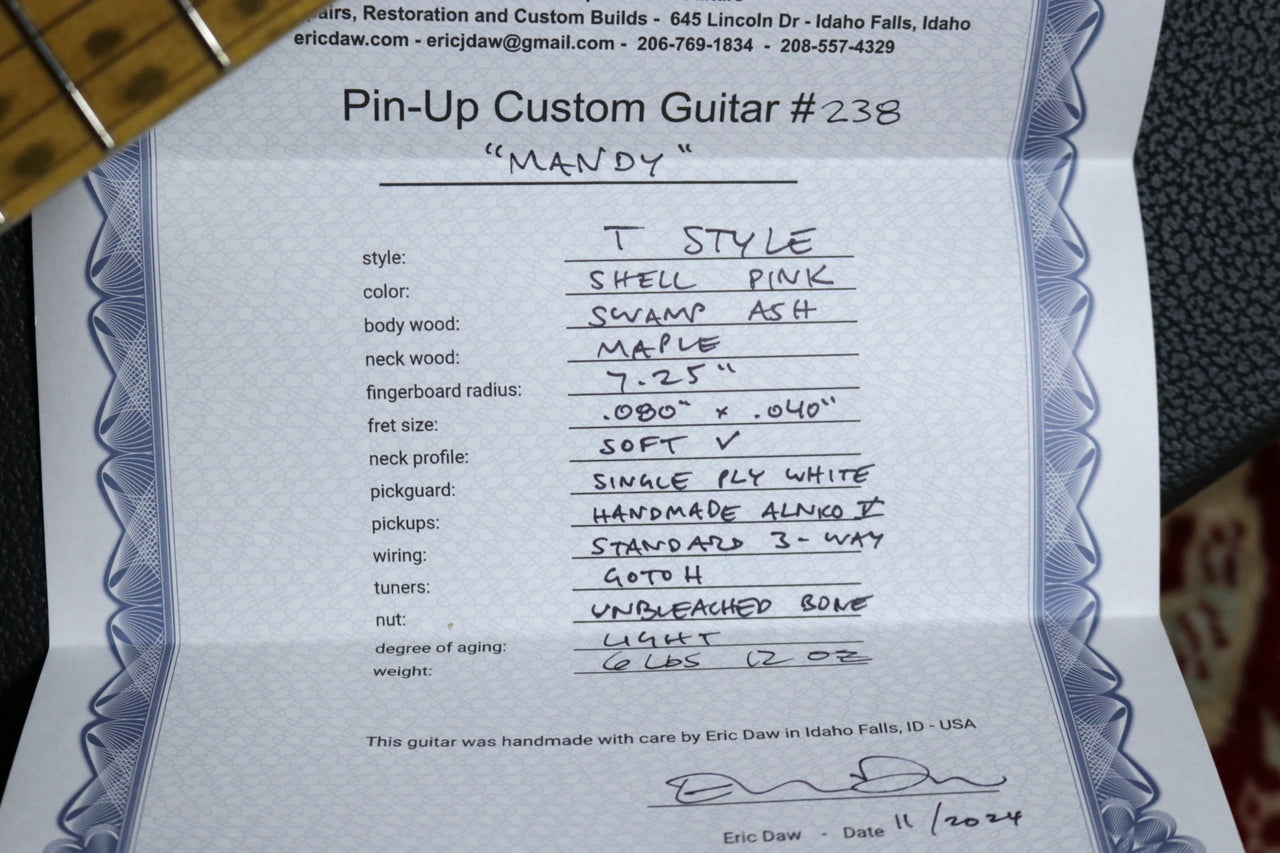 airs, Restoration and Custom Builds - 645 Lincoln Dr - Idaho Falls, Idaho
ericdaw.com - ericjdaw@gmail.com - 206-769-1834 - 208-557-4329
Pin-Up Custom Guitar #238
"MANDY"
style: T STYLE
color: SHELL PINK
body wood: SWAMP ASH
neck wood: MAPLE
fingerboard radius: 7.25"
fret size: .080" x .040"
neck profile: SOFT V
pickguard: SINGLE PLY WHITE
pickups: HANDMADE ALNICO V
wiring: STANDARD 3-WAY
tuners: GOTOH
nut: UNBLEACHED BONE
degree of aging: LIGHT
weight: 6 LBS 12 OZ
This guitar was handmade with care by Eric Daw in Idaho Falls, ID - USA
Eric Daw - Date 11/2024